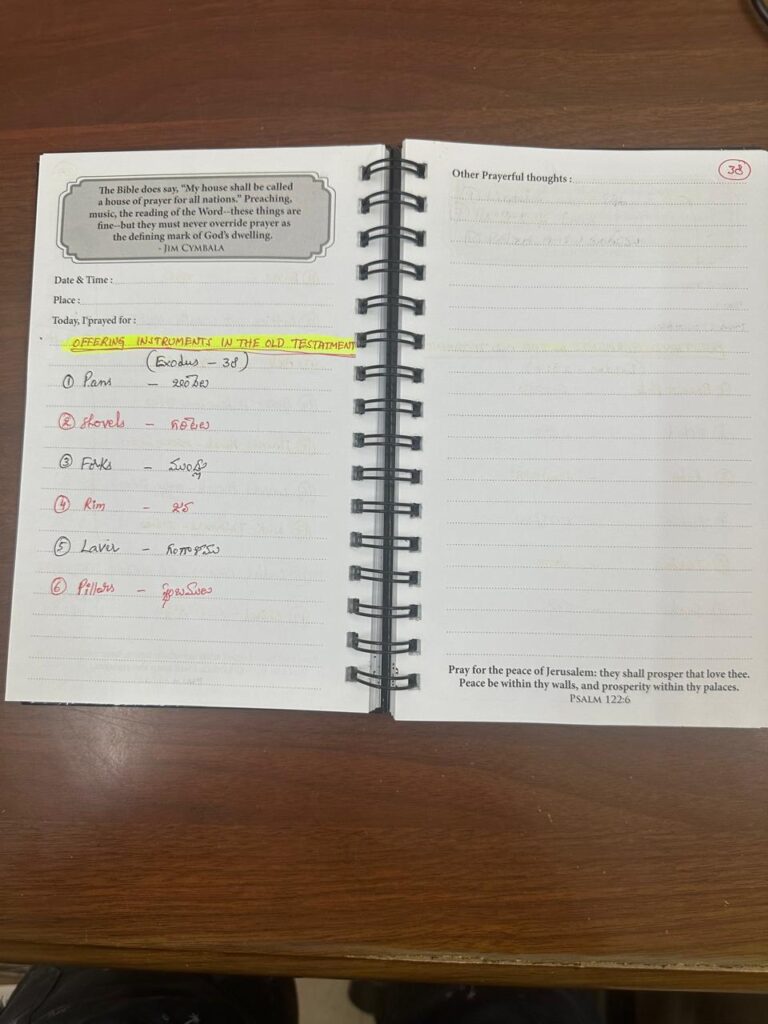 The Bible does say, "My house shall be called
a house of prayer for all nations." Preaching,
music, the reading of the Word--these things are
fine--but they must never override prayer as
the defining mark of God's dwelling.
- JIM CYMBALA
Date & Time :
Place :
Today, I prayed for :
OFFERING INSTRUMENTS IN THE OLD TESTATMENT
(Exodus - 38)
① Pans -
② Shovels - గరిటెలు
③ Forks - ముండ్లు
④ Rim - జవ
⑤ Lavir - గంగాళము
⑥ Pillars - స్తంబములు
Other Prayerful thoughts :
38
Pray for the peace of Jerusalem: they shall prosper that love thee.
Peace be within thy walls, and prosperity within thy palaces.
PSALM 122:6